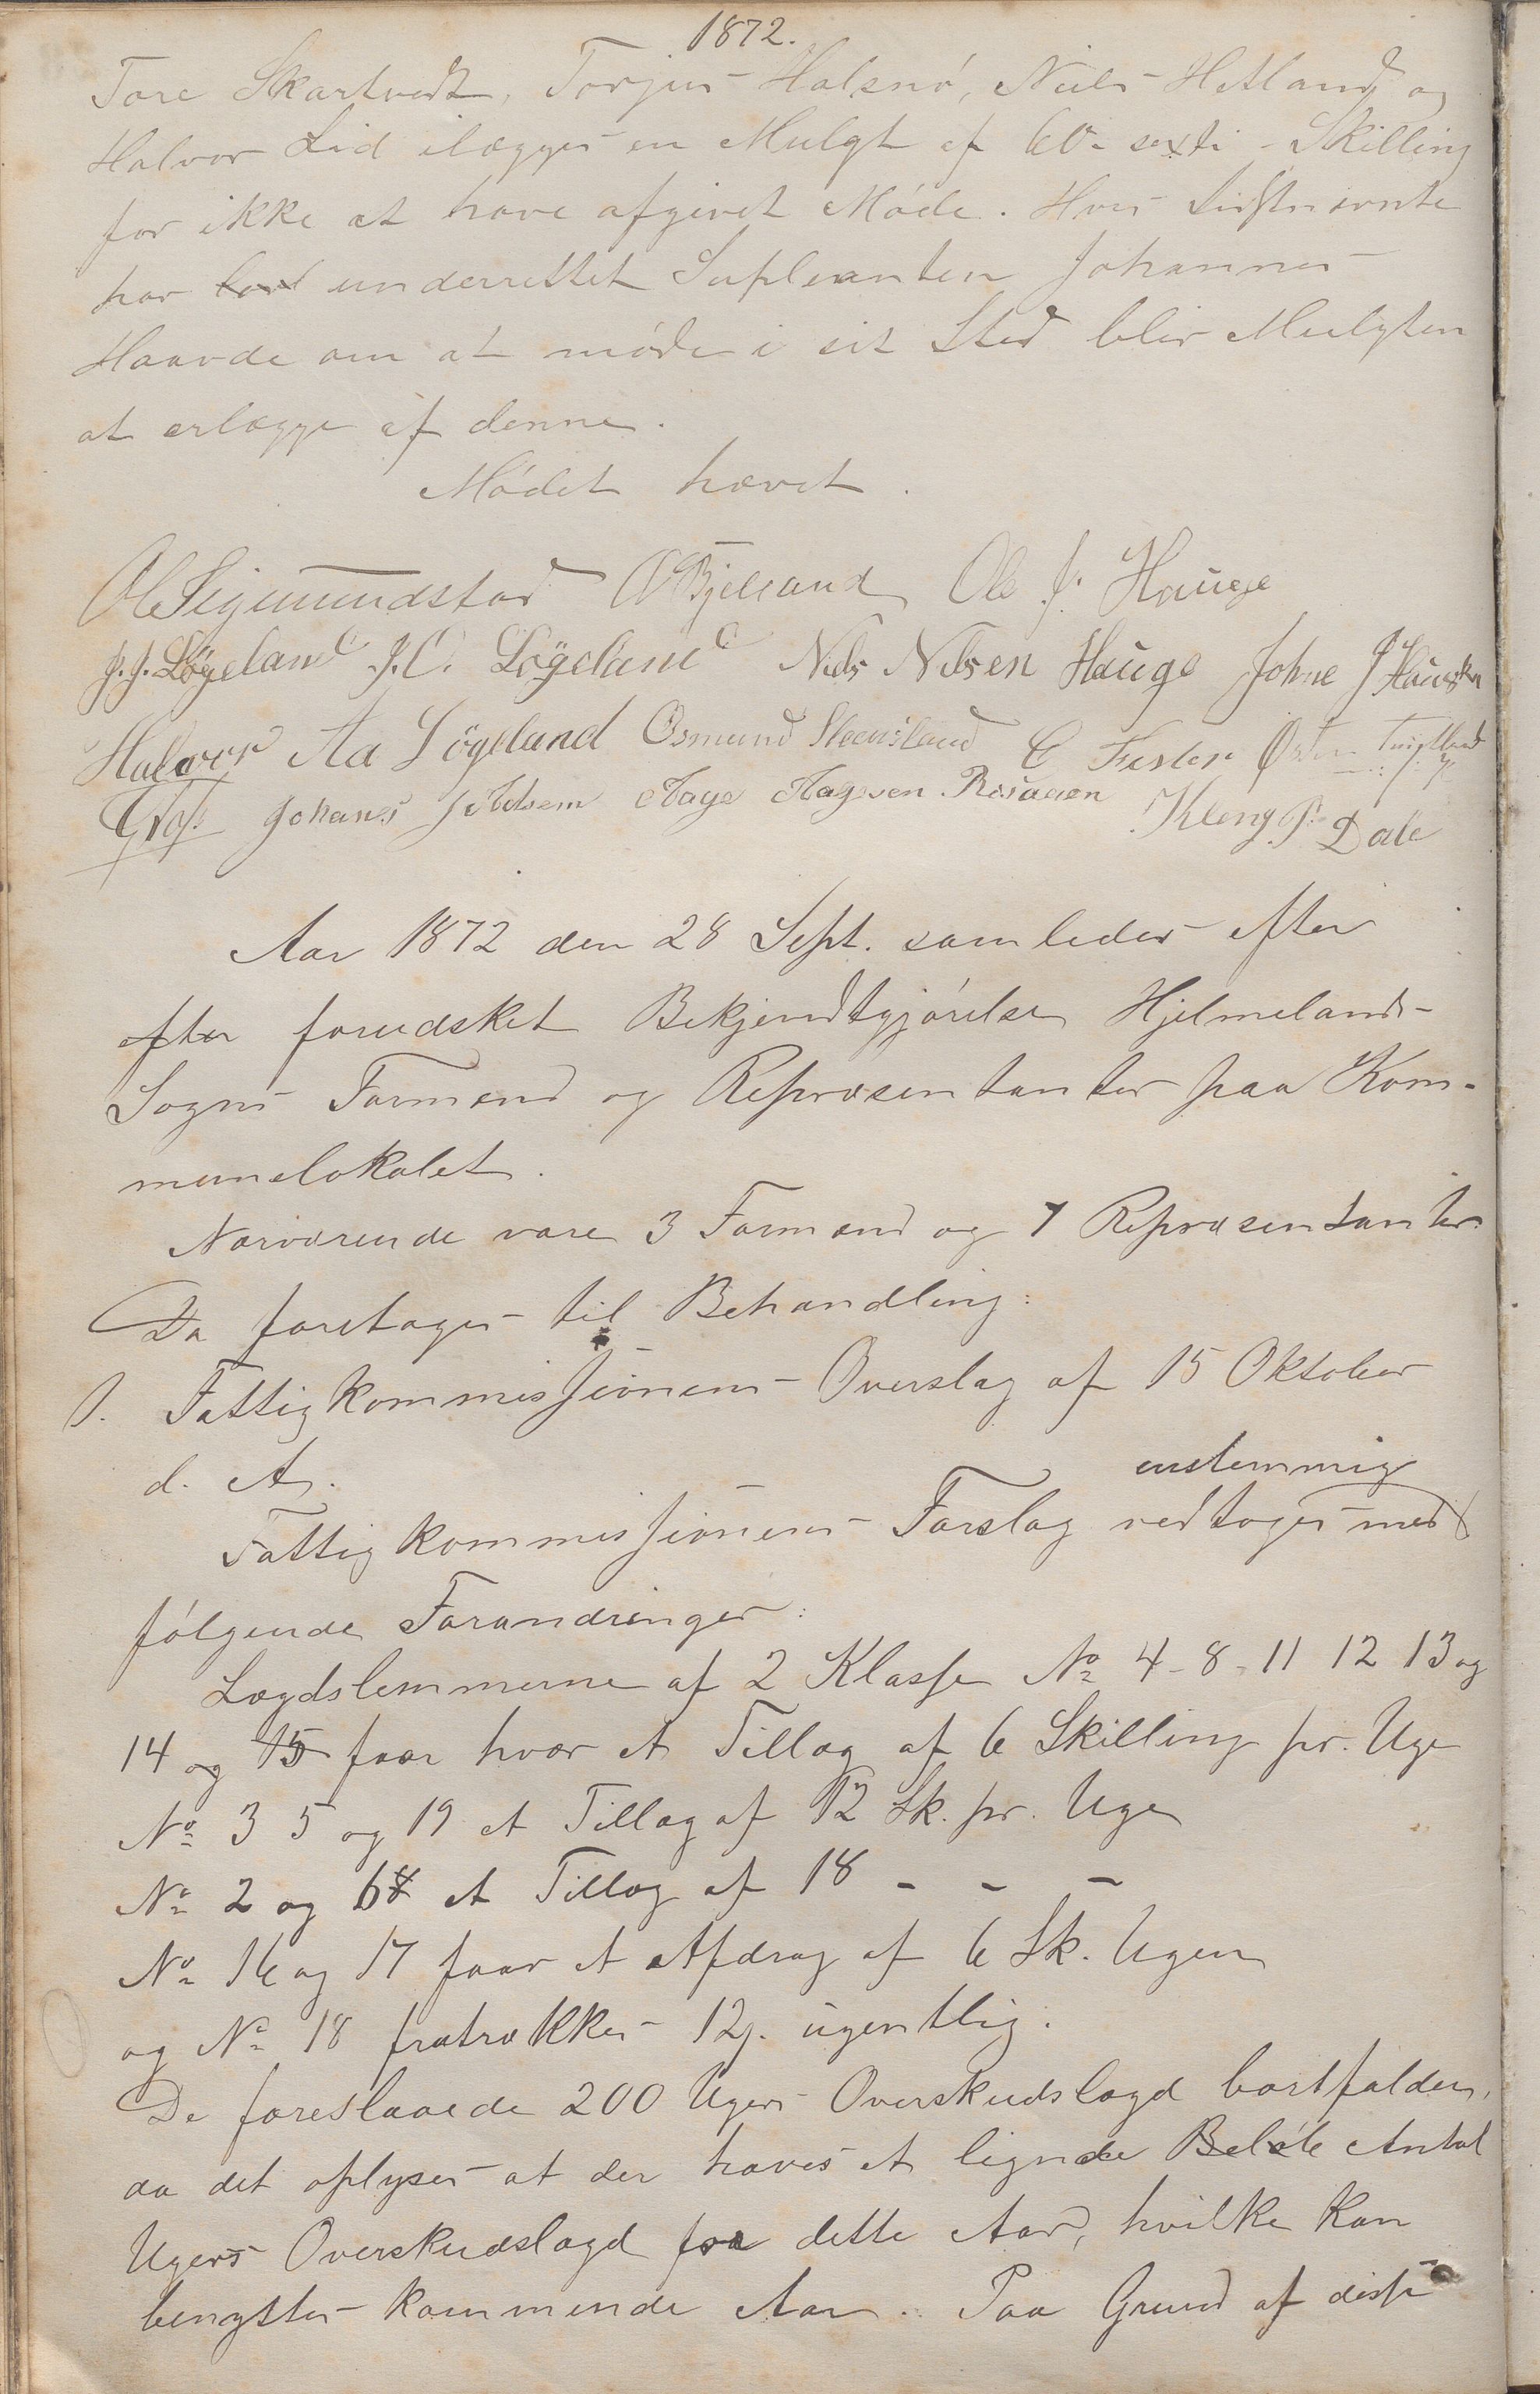 1872.
Tore Skartvedt, Torjus Halsnö, Niels Hetland og
Halvor Lid ilægges en Mulgt af 60 - sexti - Skilling
for ikke at have afgivet Möde. Hvis Sidstnævnte
har underrettet Supleanten Johannes
Haavde om at möde i sit Sted blir Mulgten
at erlægge af denne.
Mödet hævet.
Ol Sigmundstad O Bjelland Ole J. Hauge
J. J. Lögeland J. C. Lögeland Niels Nilsen Hauge Johne J
Halvor Aa Lögeland Osmund Steensland E Fister Östen
Johans J Aage Aagesen Kleng P. Dale
Aar 1872 den 28 Sept. samledes efter
efter forudsket Bekjendtgjörelse Hjelmelands
Sogns Formænd og Repræsentanter paa Kom-
munelokalet.
Nærværende vare 3 Formænd og 7 Repræsentanter.
Da foretages til Behandling:
1. Fattigkommissionens Overslag af 15 Oktober
d. A.
enstemmig
Fattigkommissionens Forslag vedtoges med
fölgende Forandringer:
Lægdslemmerne af 2 Klasse No 4 - 8 - 11 12 13 og
14 og 15 faar hver et Tillæg af 6 Skilling pr. Uge
No 3 5 og 19 et Tillæg af 12 Sk. pr. Uge
No 2 og 6 et Tillæg af 18 - - -
No 16 og 17 faar et Afdrag af 6 Sk. Ugen
og No 18 fratrækkes 12 ugentlig.
De foreslaaede 200 Ugers Overskudslægd bortfalder,
da det oplyses at der haves et lignde Antal
Ugers Overskudslægd fra dette Aar, hvilke kan
benyttes kommende Aar. Paa Grund af disse